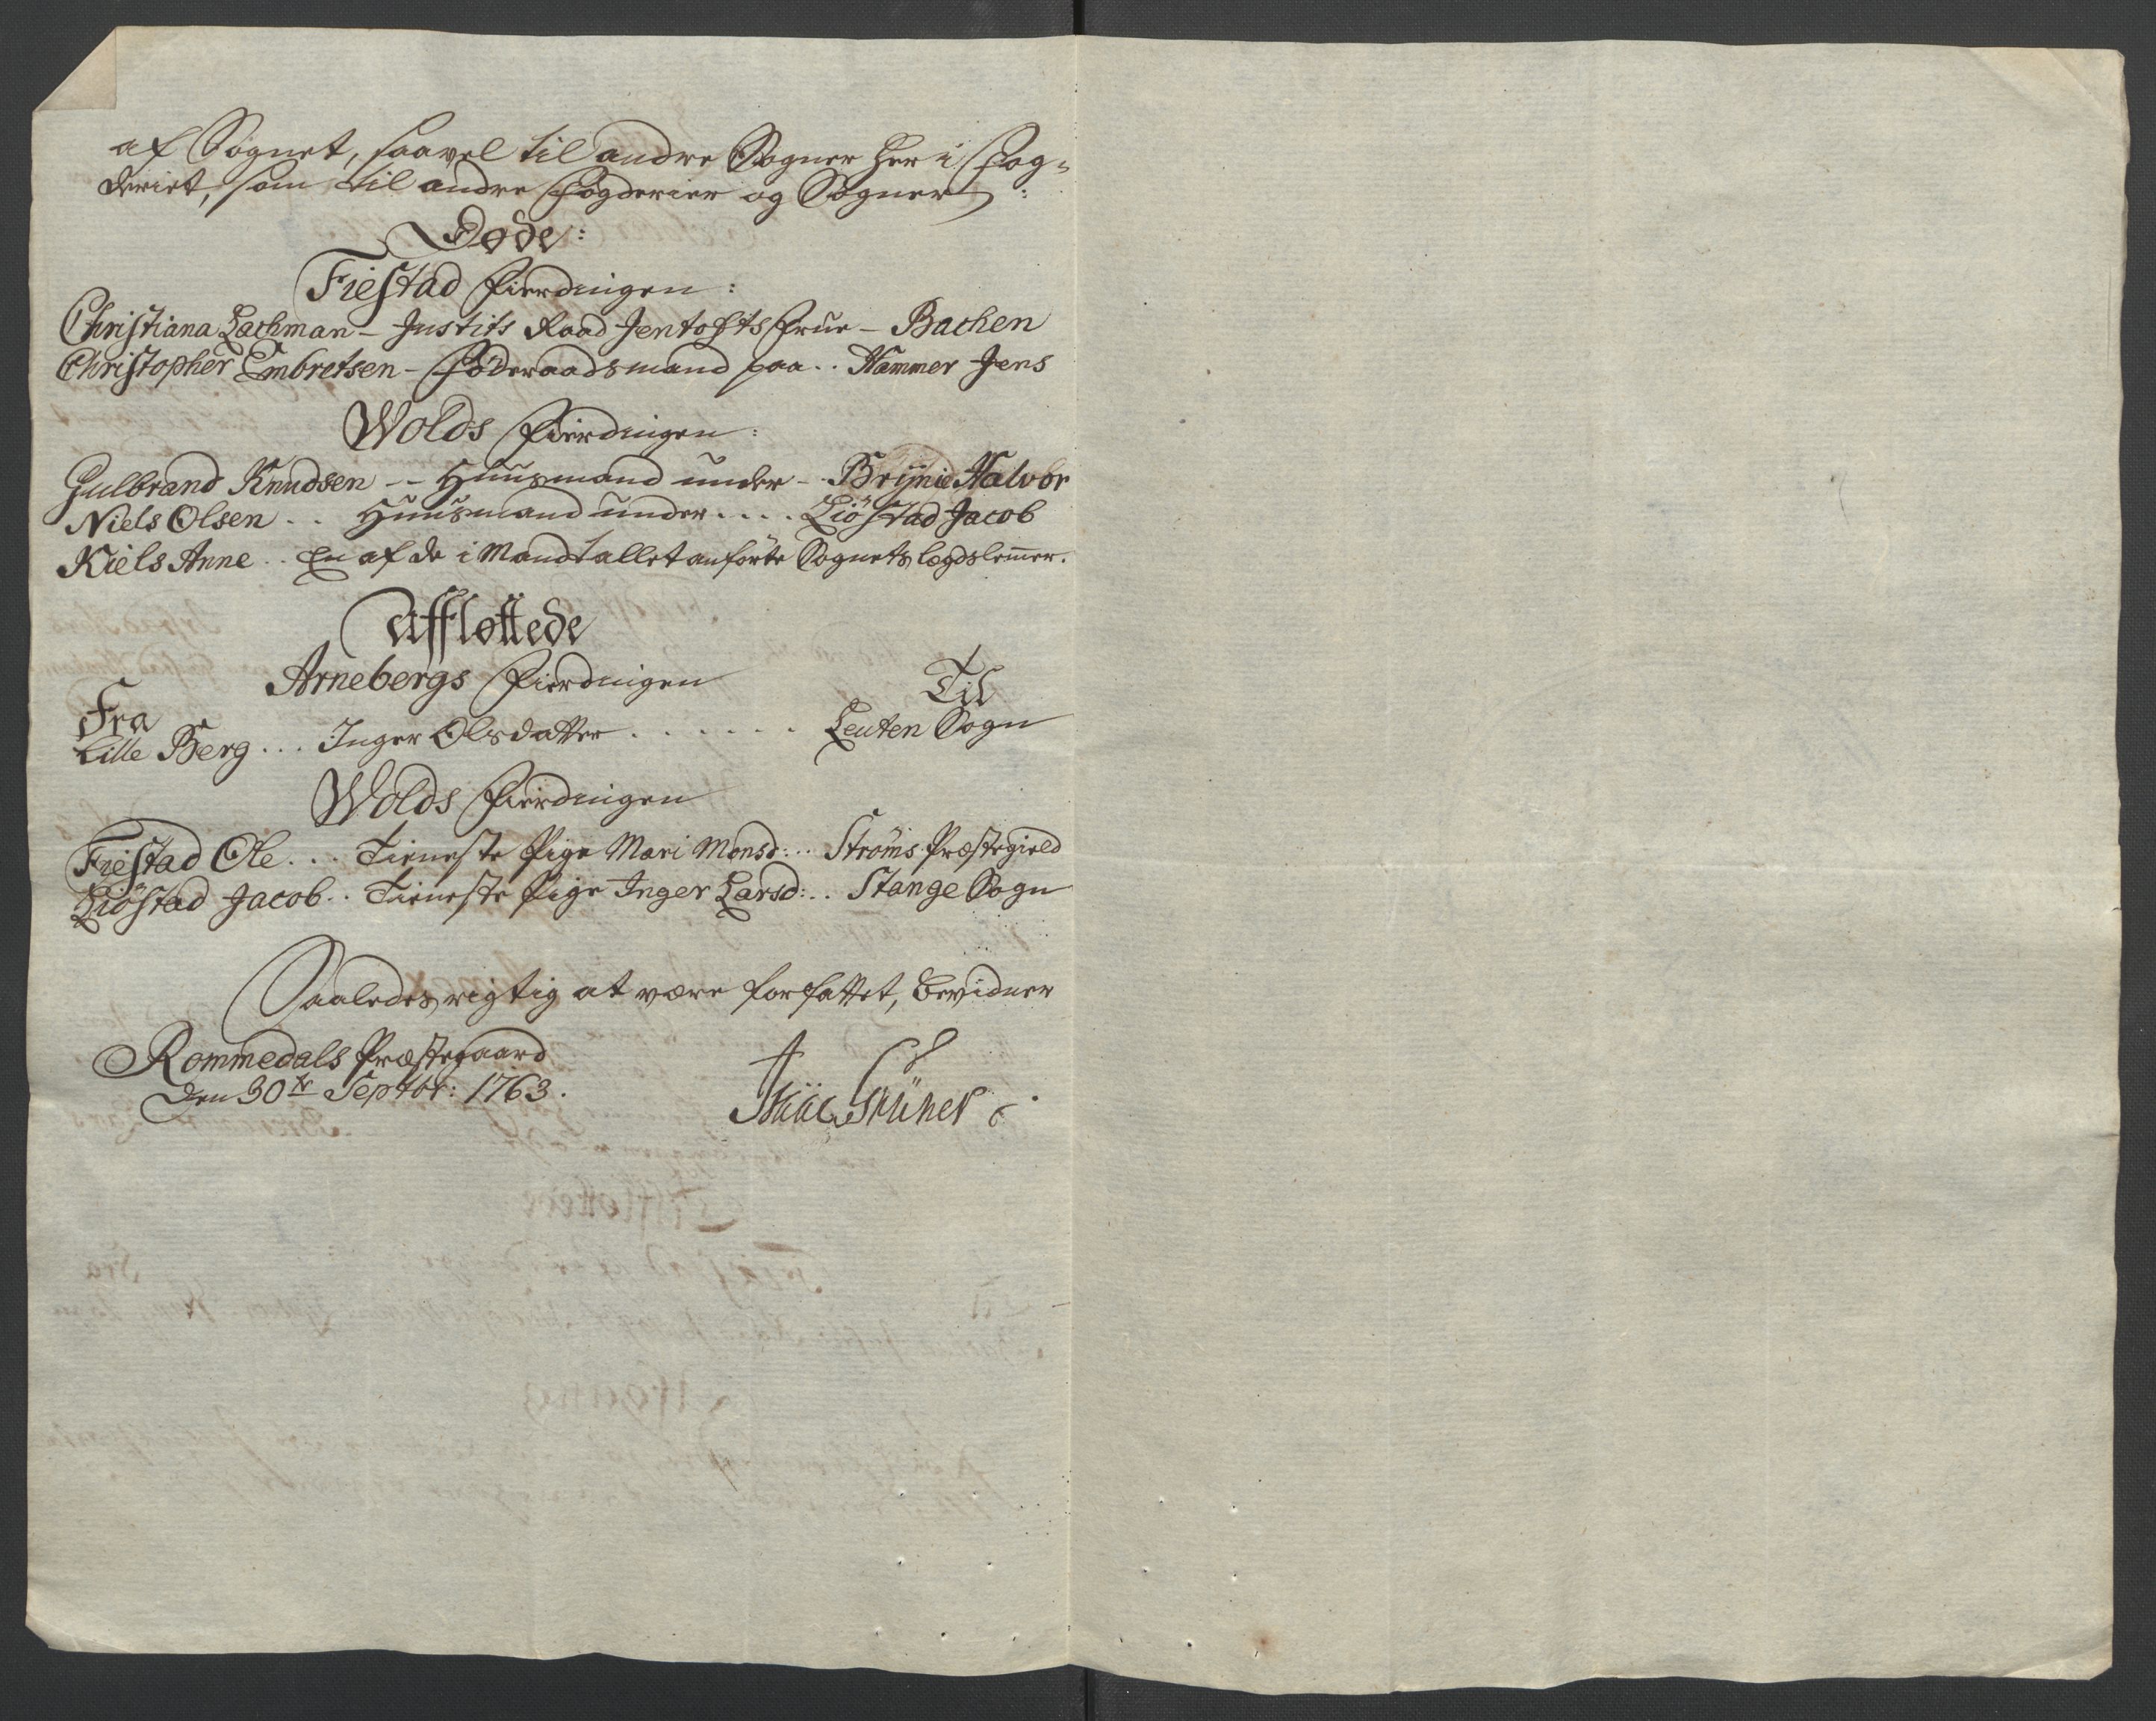 af Sognet, saavel til andre Sogner her i Fog-
deriet, som til andre Fogderier og Sogner :
Døde:
Fiestad Fierdingen :
Christiana Lachman - Justits Raad Jentofts Frue - Bachen
Christopher Embretsen - Föderaadsmand paa .. Hammer Jens
Wolds Fierdingen :
Gulbrand Knudsen -- Huusmand under - Brynie Halvor
Niels Olsen .. Huusmand under .... Liöstad Jacob
Kiels Anne .. En af de i Mandtallet anförte Sognets lægdslemer.
Affløttede
Arnebergs Fierdingen
Fra Til
Lille Berg ... Inger Olsdatter ....... Leuten Sogn
Wolds Fierdingen
Fiestad Ole ... Tieneste Pige Mari Monsd: .. Ströms Præstegield
Liöstad Jacob .. Tieneste Pige Inger Larsd: .. Stange Sogn
Saaledes rigtig at være forfattet, bevidner
Rommedals Præstegaard
Den 30te Septbr: 1763.
Isaac Grüner